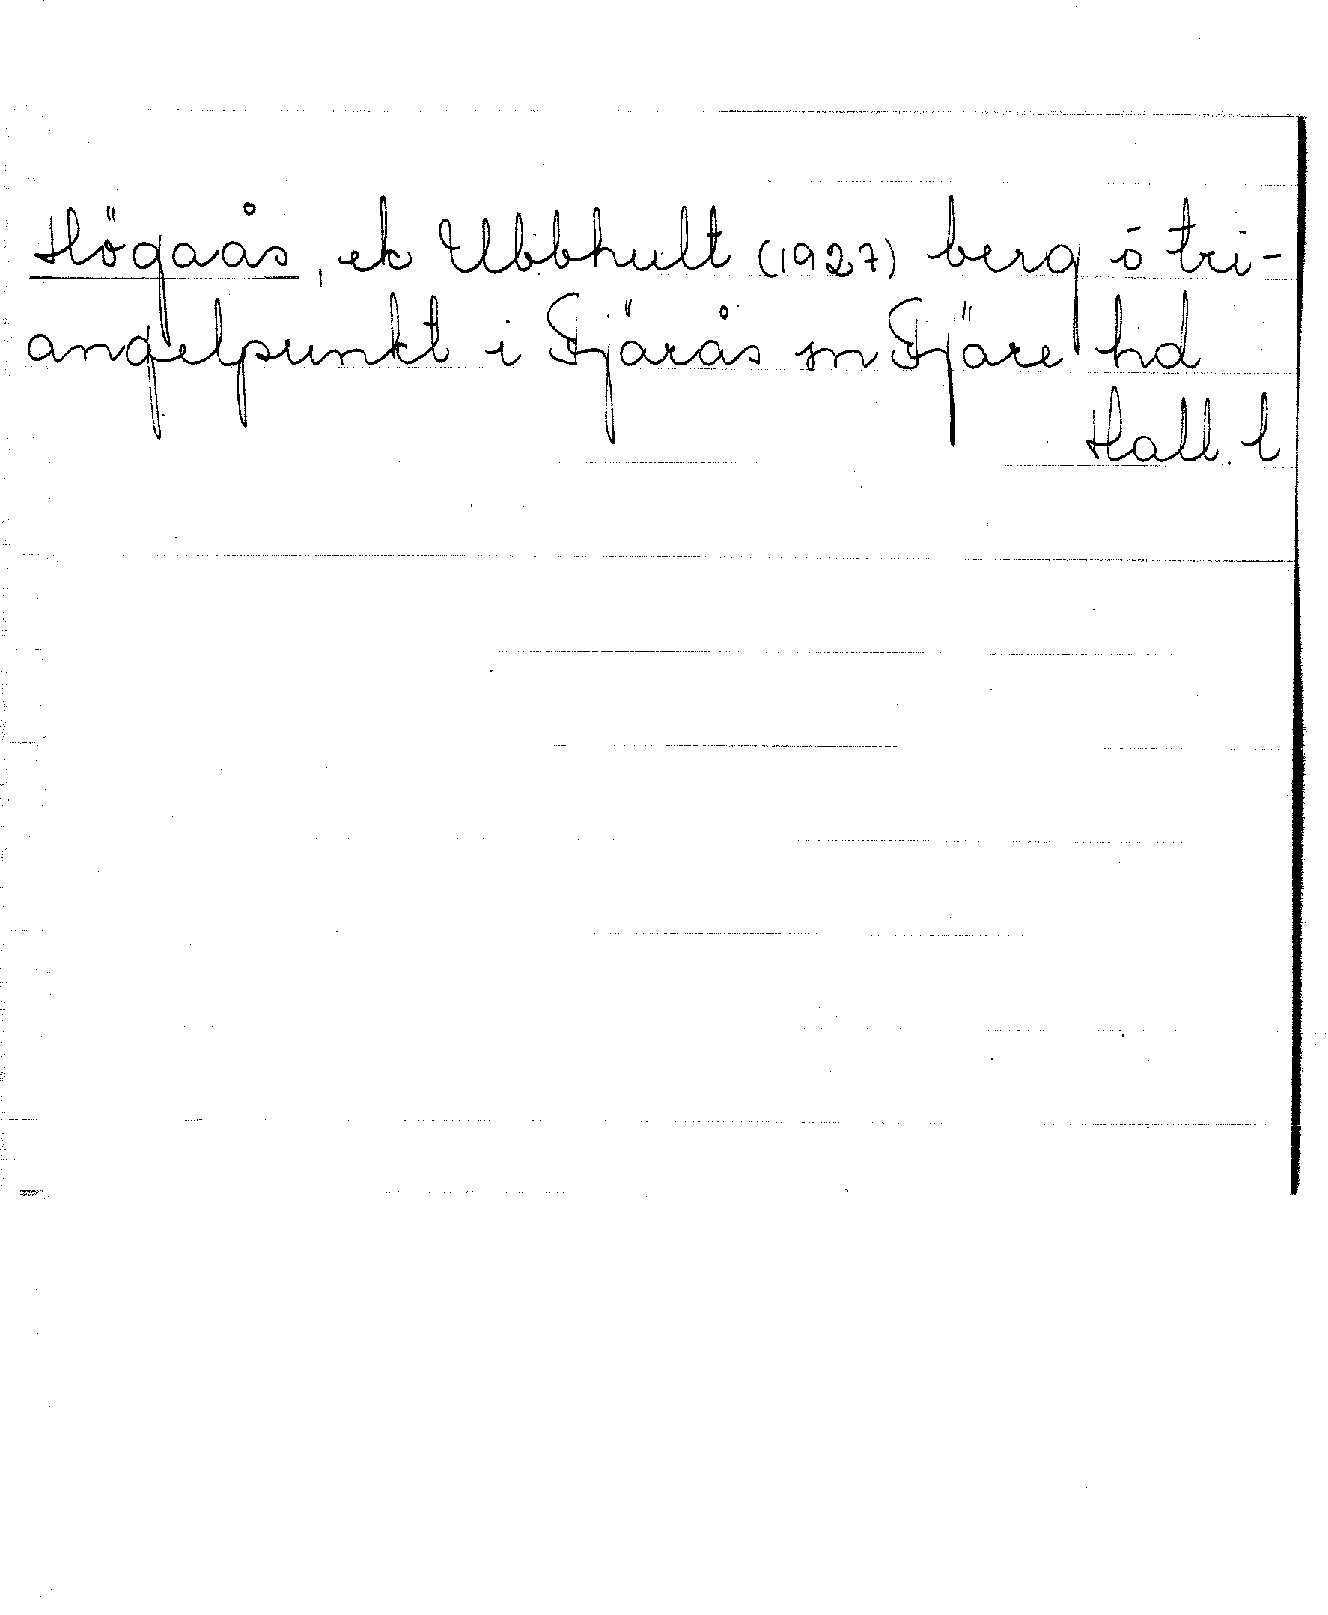 Högaås, ek Ubbhult (1927) berg ó tri-
angelpunkt i Fjärås sn Fjäre hd
Hall. l